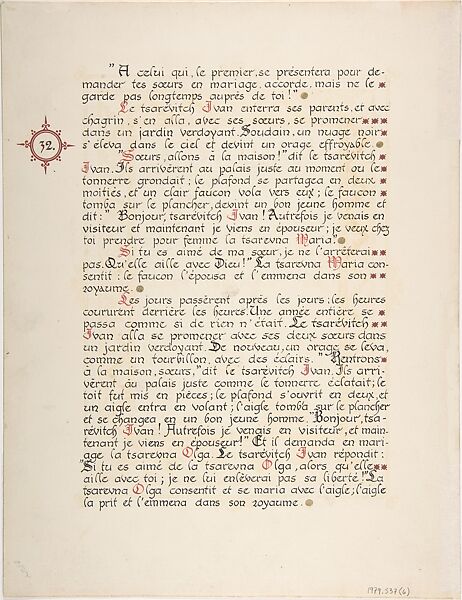 " A celui qui, le premier, se présentera pour de-
mander tes sœurs en mariage, accorde, mais ne le
garde pas longtemps auprès de toi!"
Le tsarévitch Ivan enterra ses parents, et avec
chagrin, s'en alla, avec ses sœurs, se promener
dans un jardin verdoyant. Soudain, un nuage noir
32.
s'éleva dans le ciel et devint un orage effroyable.
"Sœurs, allons à la maison!" dit le tsarévitch
Ivan. Ils arrivèrent au palais juste au moment où le
tonnerre grondait; le plafond se partagea en deux
moitiés, et un clair faucon vola vers eux; le faucon
tomba sur le plancher, devint un bon jeune homme et
dit: " Bonjour, tsarévitch Ivan! Autrefois je venais en
visiteur et maintenant je viens en épouseur; je veux chez
toi prendre pour femme la tsarevna Maria."
Si tu es aimé de ma sœur, je ne l'arrêterai
pas. Qu'elle aille avec Dieu!" La tsarevna Maria con-
sentit: le faucon l'épousa et l'emmena dans son
royaume.
Les jours passèrent après les jours: les heures
coururent derrière les heures. Une année entière se
passa comme si de rien n'était. Le tsarévitch
Ivan alla se promener avec ses deux sœurs dans
un jardin verdoyant. De nouveau, un orage se leva,
comme un tourbillon, avec des éclairs. " Rentrons
à la maison, sœurs," dit le tsarévitch Ivan. Ils arri-
vèrent au palais juste comme le tonnerre éclatait; le
toit fut mis en pièces; le plafond s'ouvrit en deux, et
un aigle entra en volant; l'aigle tomba sur le plancher
et se changea en un bon jeune homme. "Bonjour, tsa-
révitch Ivan! Autrefois je venais en visiteur, et main-
tenant je viens en épouseur!" Et il demanda en mari-
age la tsarevna Olga. Le tsarévitch Ivan répondit:
"Si tu es aimé de la tsarevna Olga, alors qu'elle
aille avec toi; je ne lui enlèverai pas sa liberté!" La
tsarevna Olga consentit et se maria avec l'aigle; l'aigle
la prit et l'emmena dans son royaume.
1979.537(6)